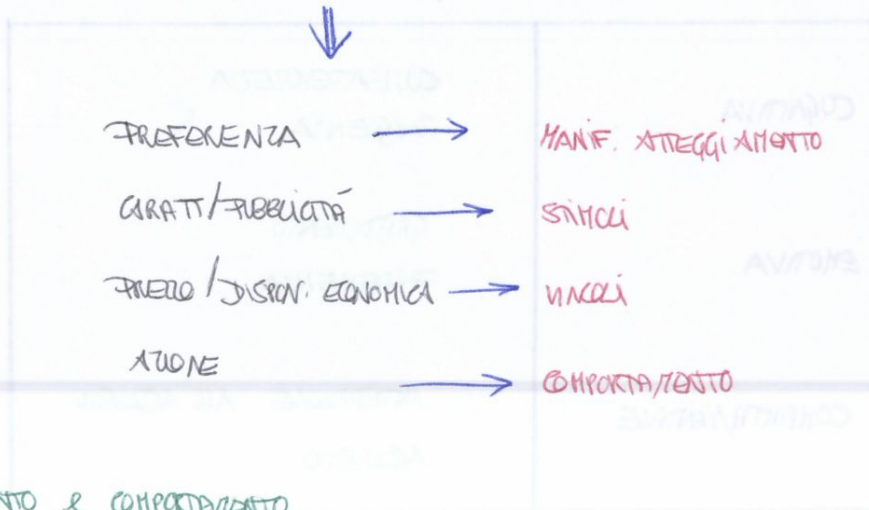 PREFERENZA → MANIF. ATTEGGIAMENTO
CARATT/PUBBLICITÁ → STIMOLI
PREZZO / DISPON. ECONOMICA → VINCOLI
AZIONE → COMPORTAMENTO
NTO & COMPORTAMENTO